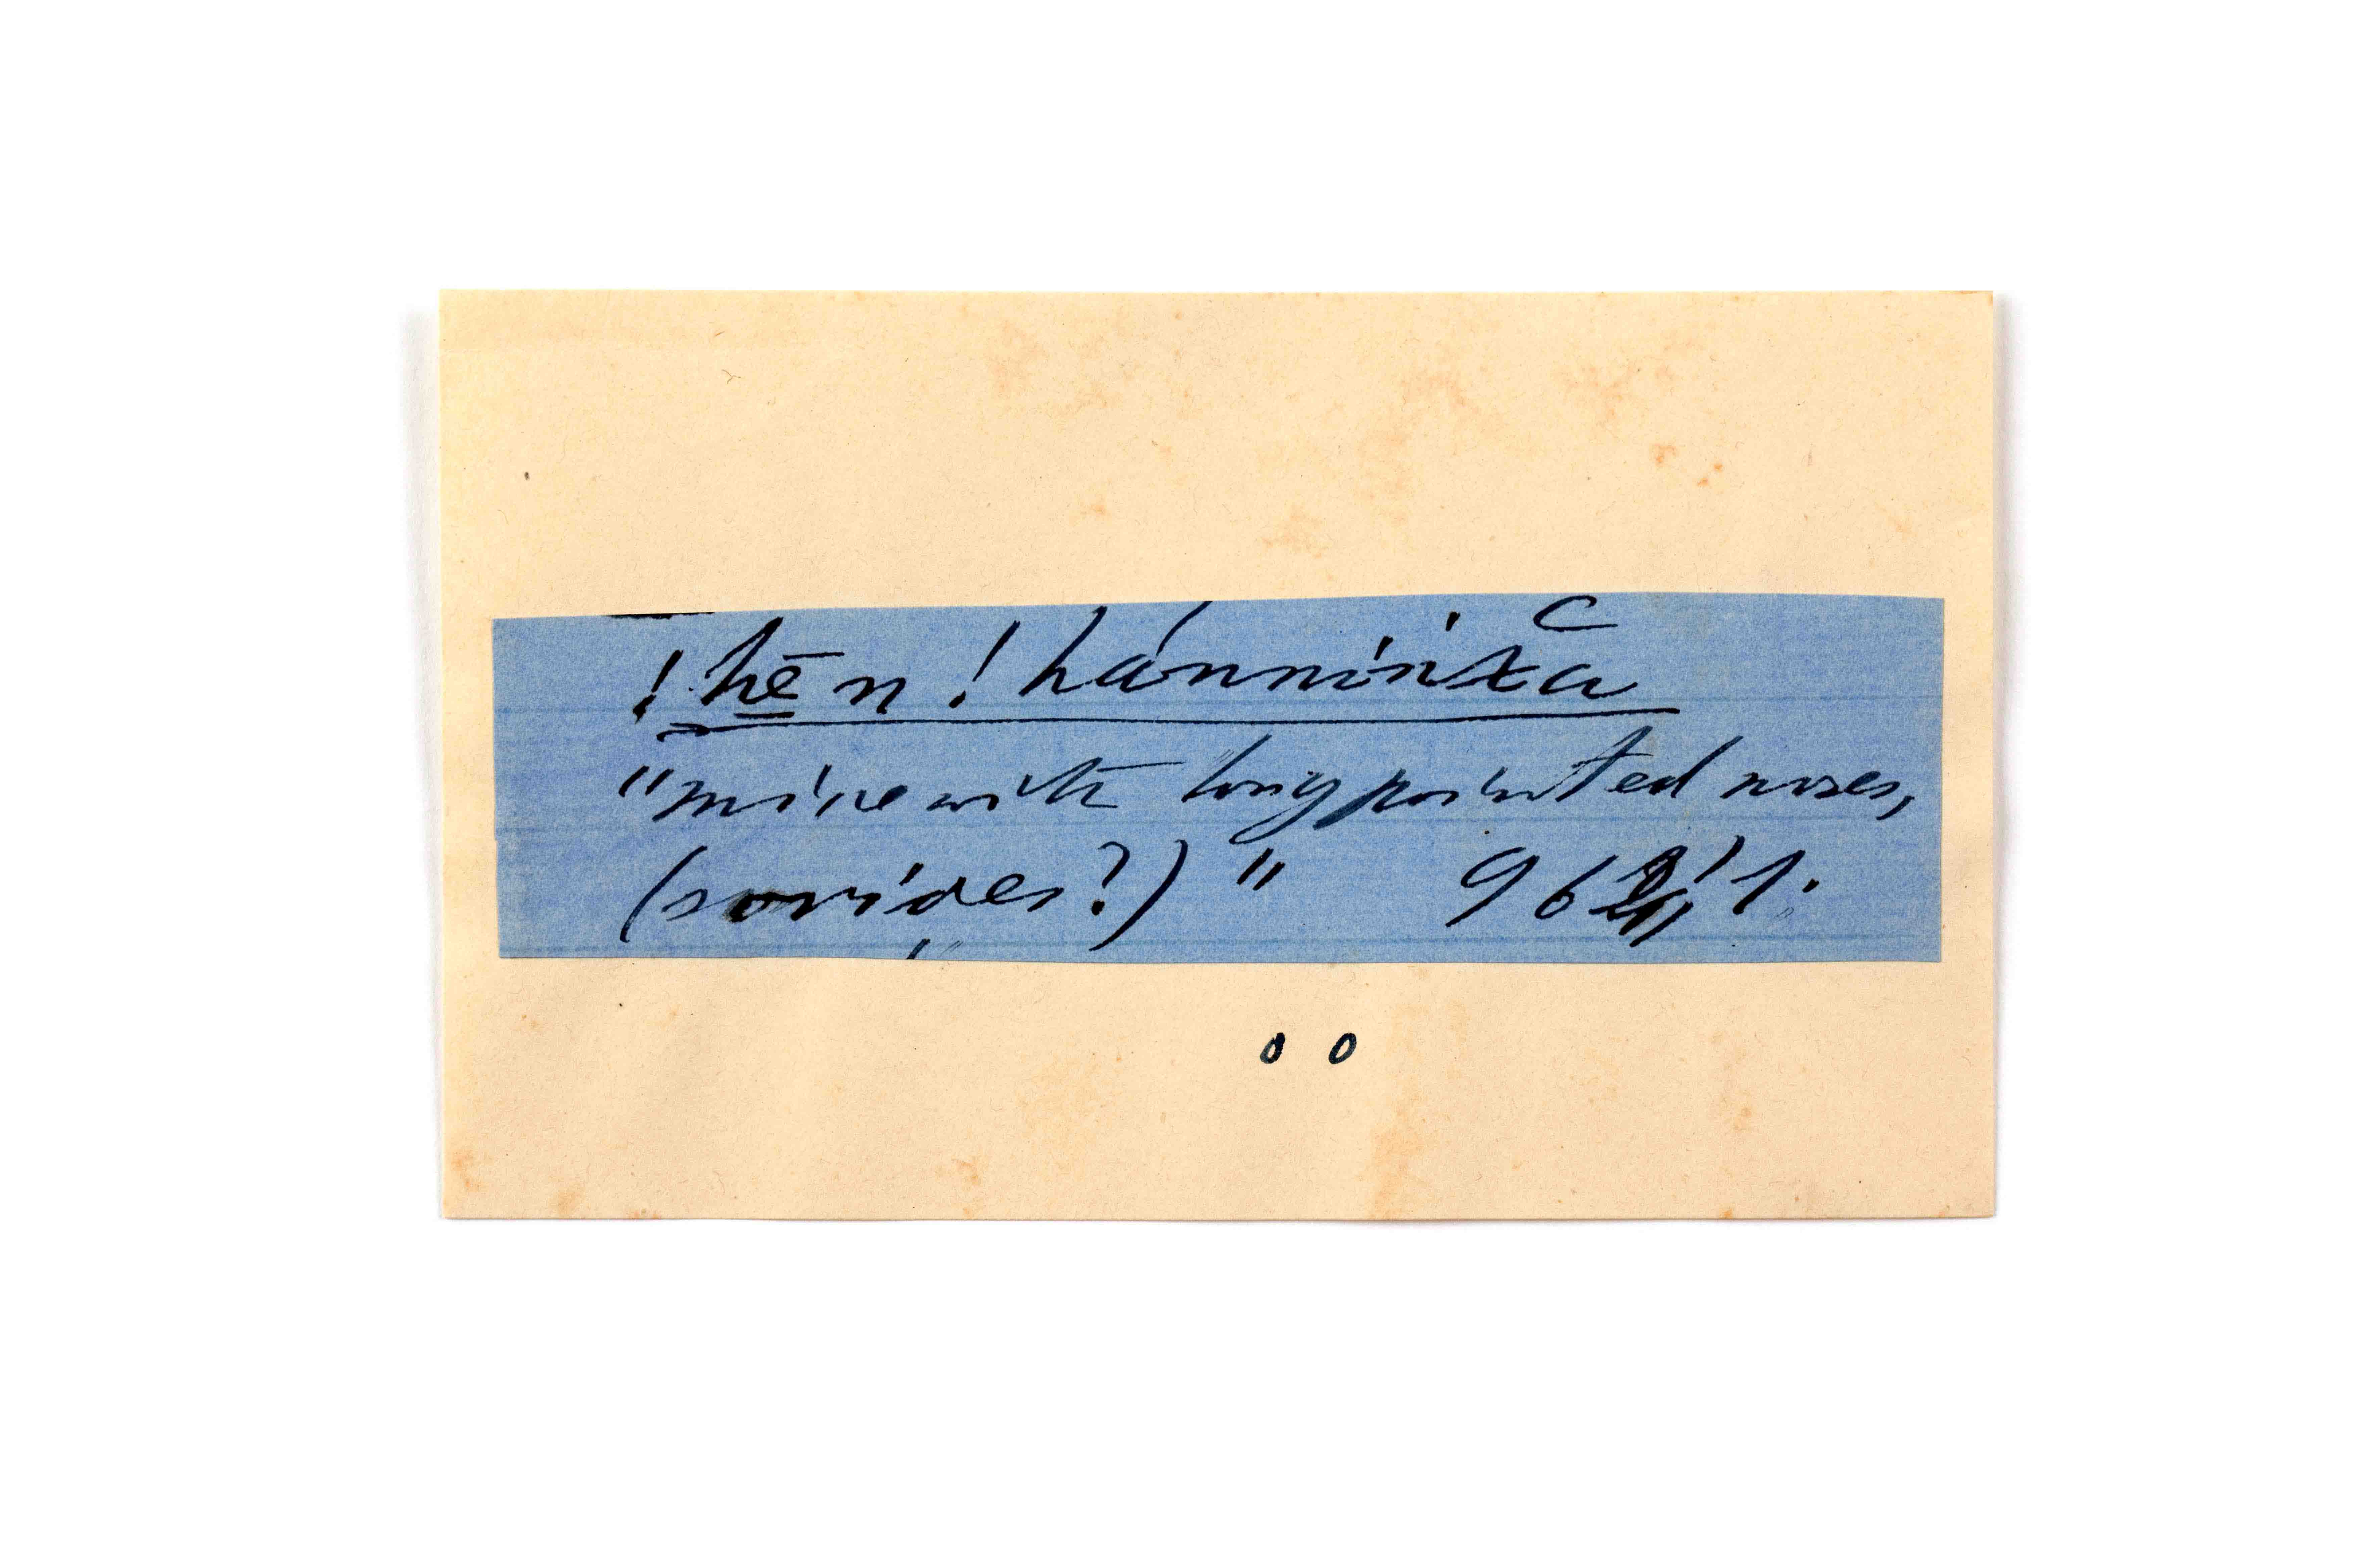 !hēn !hánniṅx̌a
"mice with long pointed noses,
(sorides?)" 96 1.
0 0